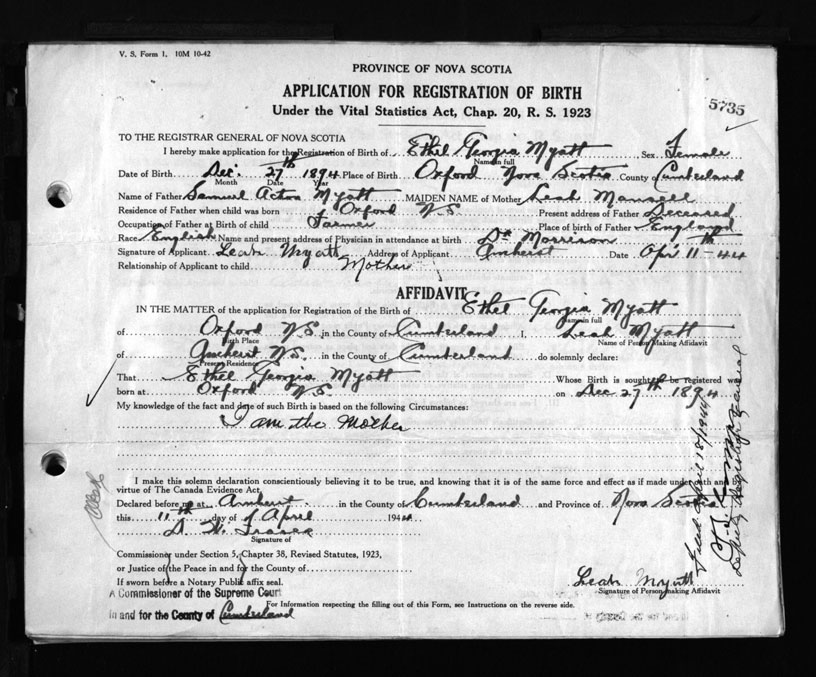 V. S. Form 1. 10M 10-42
PROVINCE OF NOVA SCOTIA
APPLICATION FOR REGISTRATION OF BIRTH
Under the Vital Statistics Act, Chap. 20, R. S. 1923
5735
TO THE REGISTRAR GENERAL OF NOVA SCOTIA
I hereby make application for the Registration of Birth of Ethel Georgia Myatt Sex Female
Name in full
Date of Birth Dec. 27th 1894 Place of Birth Oxford Nova Scotia County of Cumberland
Month Date Year
Name of Father Samuel Acton Myatt MAIDEN NAME of Mother Leah Mansell
Residence of Father when child was born Oxford N.S. Present address of Father Deceased
Occupation of Father at Birth of child Farmer Place of birth of Father England
Race English Name and present address of Physician in attendance at birth Dr Morrison
Signature of Applicant Leah Myatt Address of Applicant Amherst Date Apr 11th - 44
Relationship of Applicant to child Mother
AFFIDAVIT
IN THE MATTER of the application for Registration of the Birth of Ethel Georgia Myatt
Name in full
of Oxford N.S. in the County of Cumberland I, Leah Myatt
Birth Place Name of Person Making Affidavit
of Amherst N.S. in the County of Cumberland do solemnly declare:
Present Residence
That Ethel Georgia Myatt Whose Birth is sought to be registered was
born at Oxford N.S. on Dec 27th 1894
My knowledge of the fact and date of such Birth is based on the following Circumstances:
I am the Mother
I make this solemn declaration conscientiously believing it to be true, and knowing that it is of the same force and effect as if made under oath and
virtue of The Canada Evidence Act.
Declared before me at Amherst in the County of Cumberland and Province of Nova Scotia
this 11th day of April 1944
Signature of
Commissioner under Section 5, Chapter 38, Revised Statutes, 1923,
or Justice of the Peace in and for the County of
If sworn before a Notary Public affix seal.
Leah Myatt
Signature of Person making Affidavit
A Commissioner of the Supreme Court
For Information respecting the filling out of this Form, see Instructions on the reverse side.
in and for the County of Cumberland
Filed April 18/1944
Deputy Registrar General